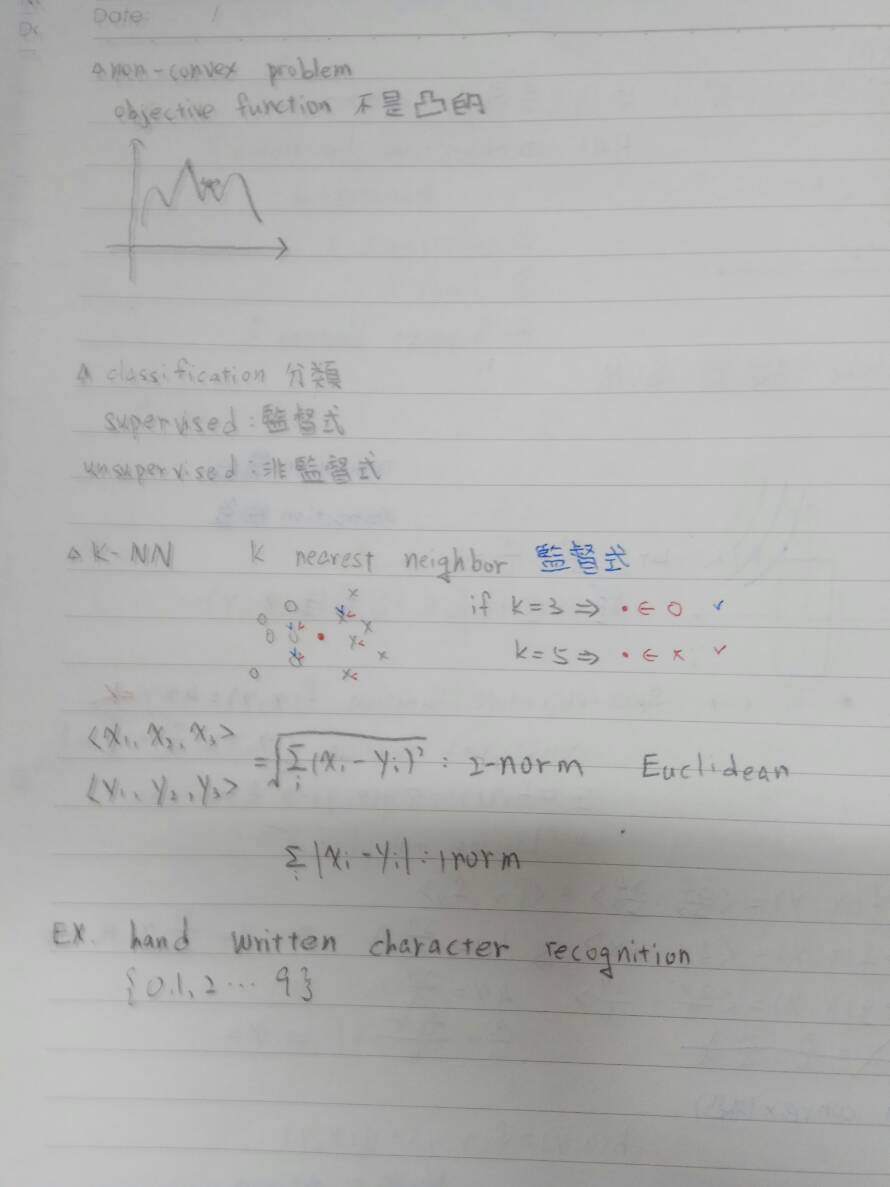 Date: /
△ non-convex problem
objective function 不是凸的
△ classification 分類
supervised : 監督式
unsupervised : 非監督式
△ K-NN K nearest neighbor 監督式
if k=3 ⇒ • ∈ O ✓
k=5 ⇒ • ∈ x ✓
<x₁, x₂, x₃>
<y₁, y₂, y₃> = √Σᵢ(xᵢ - yᵢ)² : 2-norm Euclidean
Σᵢ |xᵢ - yᵢ| : 1 norm
EX. hand written character recognition
{0.1, 2 ... 9}